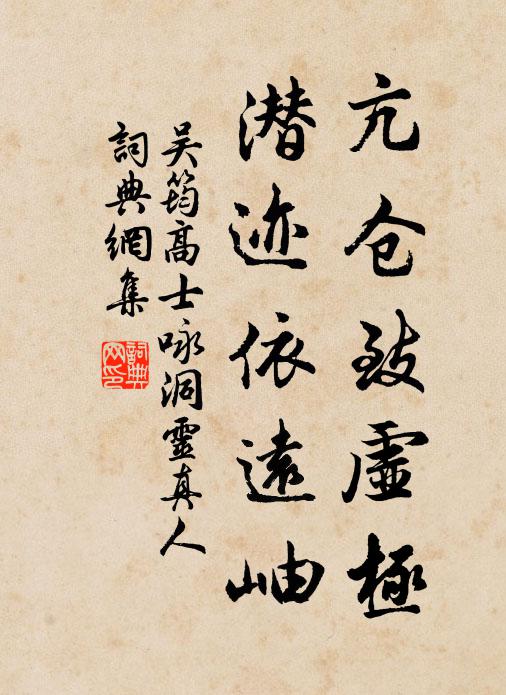 亢仓致虛極
潜迹依遠岫
吴筠高士咏洞靈真人
詞典網集
詞典網印